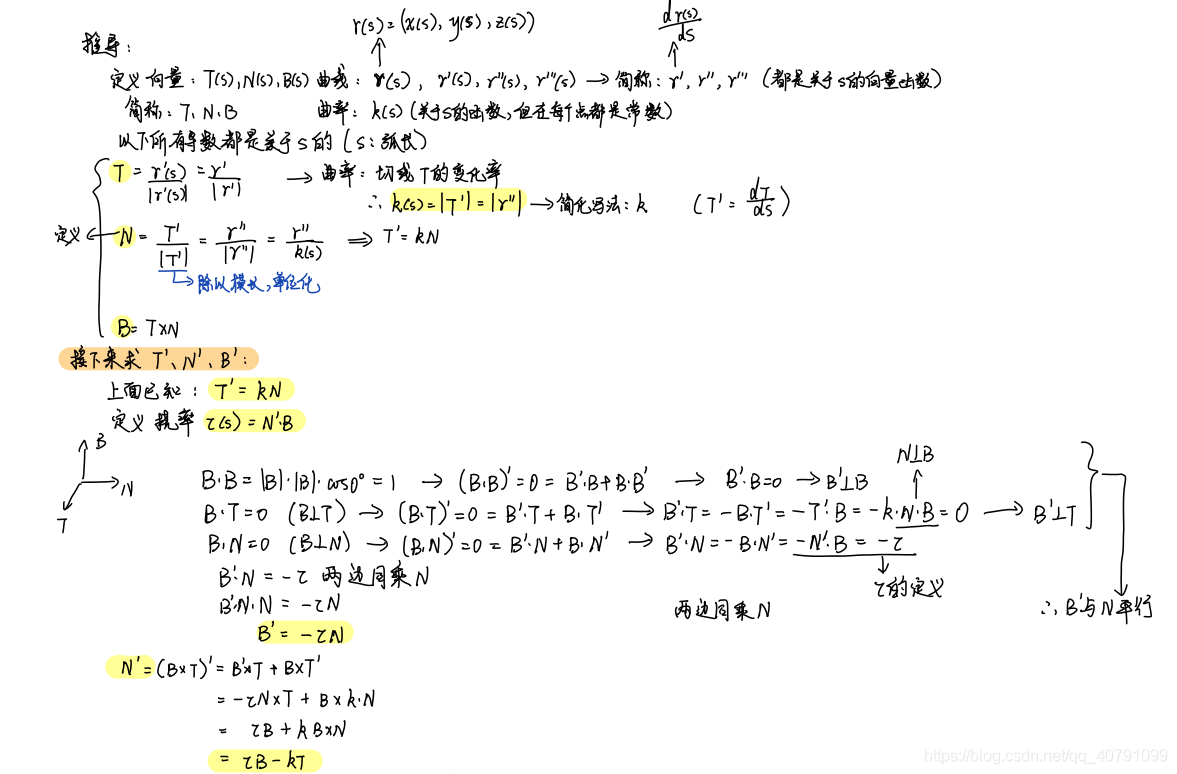 r(s)=(x(s), y(s), z(s))
dr(s)/ds
推导:
定义向量: T(s),N(s),B(s) 曲线: r(s), r'(s), r''(s), r'''(s) → 简称: r', r'', r''' (都是关于s的向量函数)
简称: T, N, B 曲率: k(s) (关于s的函数,但在每个点都是常数)
以下所有导数都是关于s的 (s: 弧长)
T = r'(s)/|r'(s)| = r'/|r'| → 曲率: 切线T的变化率
∴ k(s)=|T'|=|r''| → 简化写法: k (T' = dT/ds)
定义 N = T'/|T'| = r''/|r''| = r''/k(s) ⇒ T'=kN
→除以模长,单位化
B= T×N
接下来求 T'、N'、B':
上面已知: T'=kN
定义 挠率 τ(s)=N'·B
B
N
T
N⊥B
B·B=|B|·|B|·cos0°=1 → (B·B)'=0=B'·B+B·B' → B'·B=0 → B'⊥B
B·T=0 (B⊥T) → (B·T)'=0=B'·T+B·T' → B'·T=-B·T'=-T'·B=-k·N·B=0 → B'⊥T
B·N=0 (B⊥N) → (B·N)'=0=B'·N+B·N' → B'·N=-B·N'=-N'·B=-τ
τ的定义
B'·N=-τ 两边同乘N
B'·N·N=-τN
两边同乘N
∴ B'与N平行
B'=-τN
N'=(B×T)'=B'×T+B×T'
=-τN×T+B×k·N
= τB+kB×N
= τB-kT
https://blog.csdn.net/qq_40791099